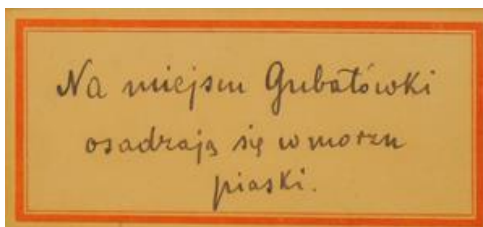 Na miejscu Gubałówki
osadzają się w morzu
piaski.